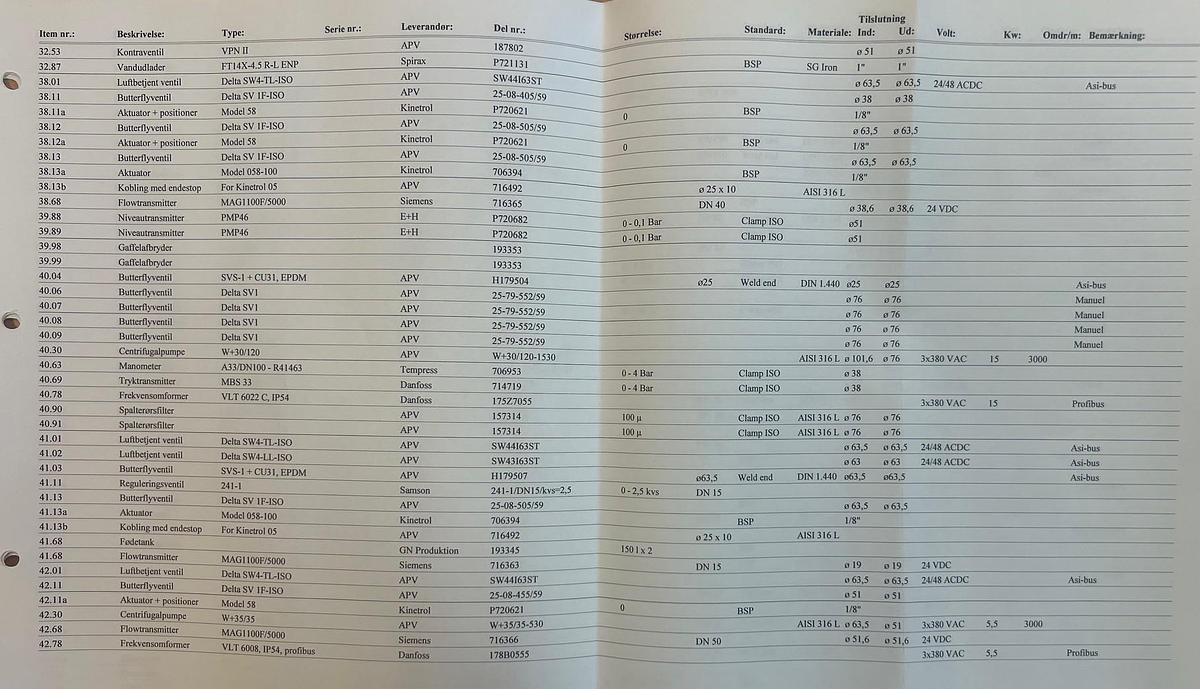 Tilslutning
Item nr.: Beskrivelse: Type: Serie nr.: Leverandør: Del nr.: Størrelse: Standard: Materiale: Ind: Ud: Volt: Kw: Omdr/m: Bemærkning:
32.53 Kontraventil VPN II APV 187802 ø 51 ø 51
32.87 Vandudlader FT14X-4.5 R-L ENP Spirax P721131 BSP SG Iron 1" 1"
38.01 Luftbetjent ventil Delta SW4-TL-ISO APV SW44I63ST ø 63,5 ø 63,5 24/48 ACDC Asi-bus
38.11 Butterflyventil Delta SV 1F-ISO APV 25-08-405/59 ø 38 ø 38
38.11a Aktuator + positioner Model 58 Kinetrol P720621 0 BSP 1/8"
38.12 Butterflyventil Delta SV 1F-ISO APV 25-08-505/59 ø 63,5 ø 63,5
38.12a Aktuator + positioner Model 58 Kinetrol P720621 0 BSP 1/8"
38.13 Butterflyventil Delta SV 1F-ISO APV 25-08-505/59 ø 63,5 ø 63,5
38.13a Aktuator Model 058-100 Kinetrol 706394 BSP 1/8"
38.13b Kobling med endestop For Kinetrol 05 APV 716492 ø 25 x 10 AISI 316 L
38.68 Flowtransmitter MAG1100F/5000 Siemens 716365 DN 40 ø 38,6 ø 38,6 24 VDC
39.88 Niveautransmitter PMP46 E+H P720682 0 - 0,1 Bar Clamp ISO ø51
39.89 Niveautransmitter PMP46 E+H P720682 0 - 0,1 Bar Clamp ISO ø51
39.98 Gaffelafbryder 193353
39.99 Gaffelafbryder 193353
40.04 Butterflyventil SVS-1 + CU31, EPDM APV H179504 ø25 Weld end DIN 1.440 ø25 ø25 Asi-bus
40.06 Butterflyventil Delta SV1 APV 25-79-552/59 ø 76 ø 76 Manuel
40.07 Butterflyventil Delta SV1 APV 25-79-552/59 ø 76 ø 76 Manuel
40.08 Butterflyventil Delta SV1 APV 25-79-552/59 ø 76 ø 76 Manuel
40.09 Butterflyventil Delta SV1 APV 25-79-552/59 ø 76 ø 76 Manuel
40.30 Centrifugalpumpe W+30/120 APV W+30/120-1530 AISI 316 L ø 101,6 ø 76 3x380 VAC 15 3000
40.63 Manometer A33/DN100 - R41463 Tempress 706953 0 - 4 Bar Clamp ISO ø 38
40.69 Tryktransmitter MBS 33 Danfoss 714719 0 - 4 Bar Clamp ISO ø 38
40.78 Frekvensomformer VLT 6022 C, IP54 Danfoss 175Z7055 3x380 VAC 15 Profibus
40.90 Spalterørsfilter APV 157314 100 µ Clamp ISO AISI 316 L ø 76 ø 76
40.91 Spalterørsfilter APV 157314 100 µ Clamp ISO AISI 316 L ø 76 ø 76
41.01 Luftbetjent ventil Delta SW4-TL-ISO APV SW44I63ST ø 63,5 ø 63,5 24/48 ACDC Asi-bus
41.02 Luftbetjent ventil Delta SW4-LL-ISO APV SW43I63ST ø 63 ø 63 24/48 ACDC Asi-bus
41.03 Butterflyventil SVS-1 + CU31, EPDM APV H179507 ø63,5 Weld end DIN 1.440 ø63,5 ø63,5 Asi-bus
41.11 Reguleringsventil 241-1 Samson 241-1/DN15/kvs=2,5 0 - 2,5 kvs DN 15
41.13 Butterflyventil Delta SV 1F-ISO APV 25-08-505/59 ø 63,5 ø 63,5
41.13a Aktuator Model 058-100 Kinetrol 706394 BSP 1/8"
41.13b Kobling med endestop For Kinetrol 05 APV 716492 ø 25 x 10 AISI 316 L
41.68 Fødetank GN Produktion 193345 150 l x 2
41.68 Flowtransmitter MAG1100F/5000 Siemens 716363 DN 15 ø 19 ø 19 24 VDC
42.01 Luftbetjent ventil Delta SW4-TL-ISO APV SW44I63ST ø 63,5 ø 63,5 24/48 ACDC Asi-bus
42.11 Butterflyventil Delta SV 1F-ISO APV 25-08-455/59 ø 51 ø 51
42.11a Aktuator + positioner Model 58 Kinetrol P720621 0 BSP 1/8"
42.30 Centrifugalpumpe W+35/35 APV W+35/35-530 AISI 316 L ø 63,5 ø 51 3x380 VAC 5,5 3000
42.68 Flowtransmitter MAG1100F/5000 Siemens 716366 DN 50 ø 51,6 ø 51,6 24 VDC
42.78 Frekvensomformer VLT 6008, IP54, profibus Danfoss 178B0555 3x380 VAC 5,5 Profibus